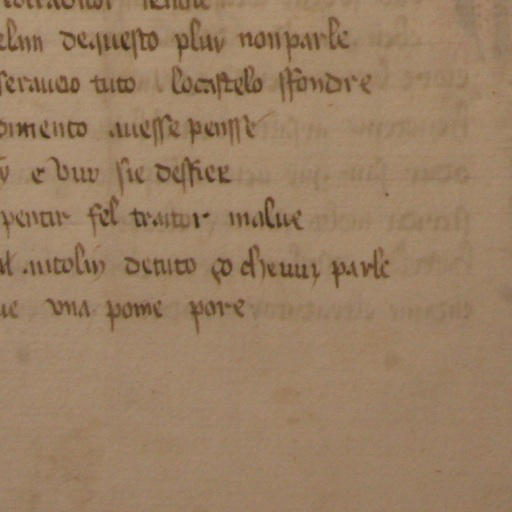 elun dequesto pluy non parle
seraueo tuto locastelo sfondre
dimento auesse pensse
y e vuy sie deffier
pentir fel traitor malue
al antolin detuto ço cheuuy parle
ue vna pome pore